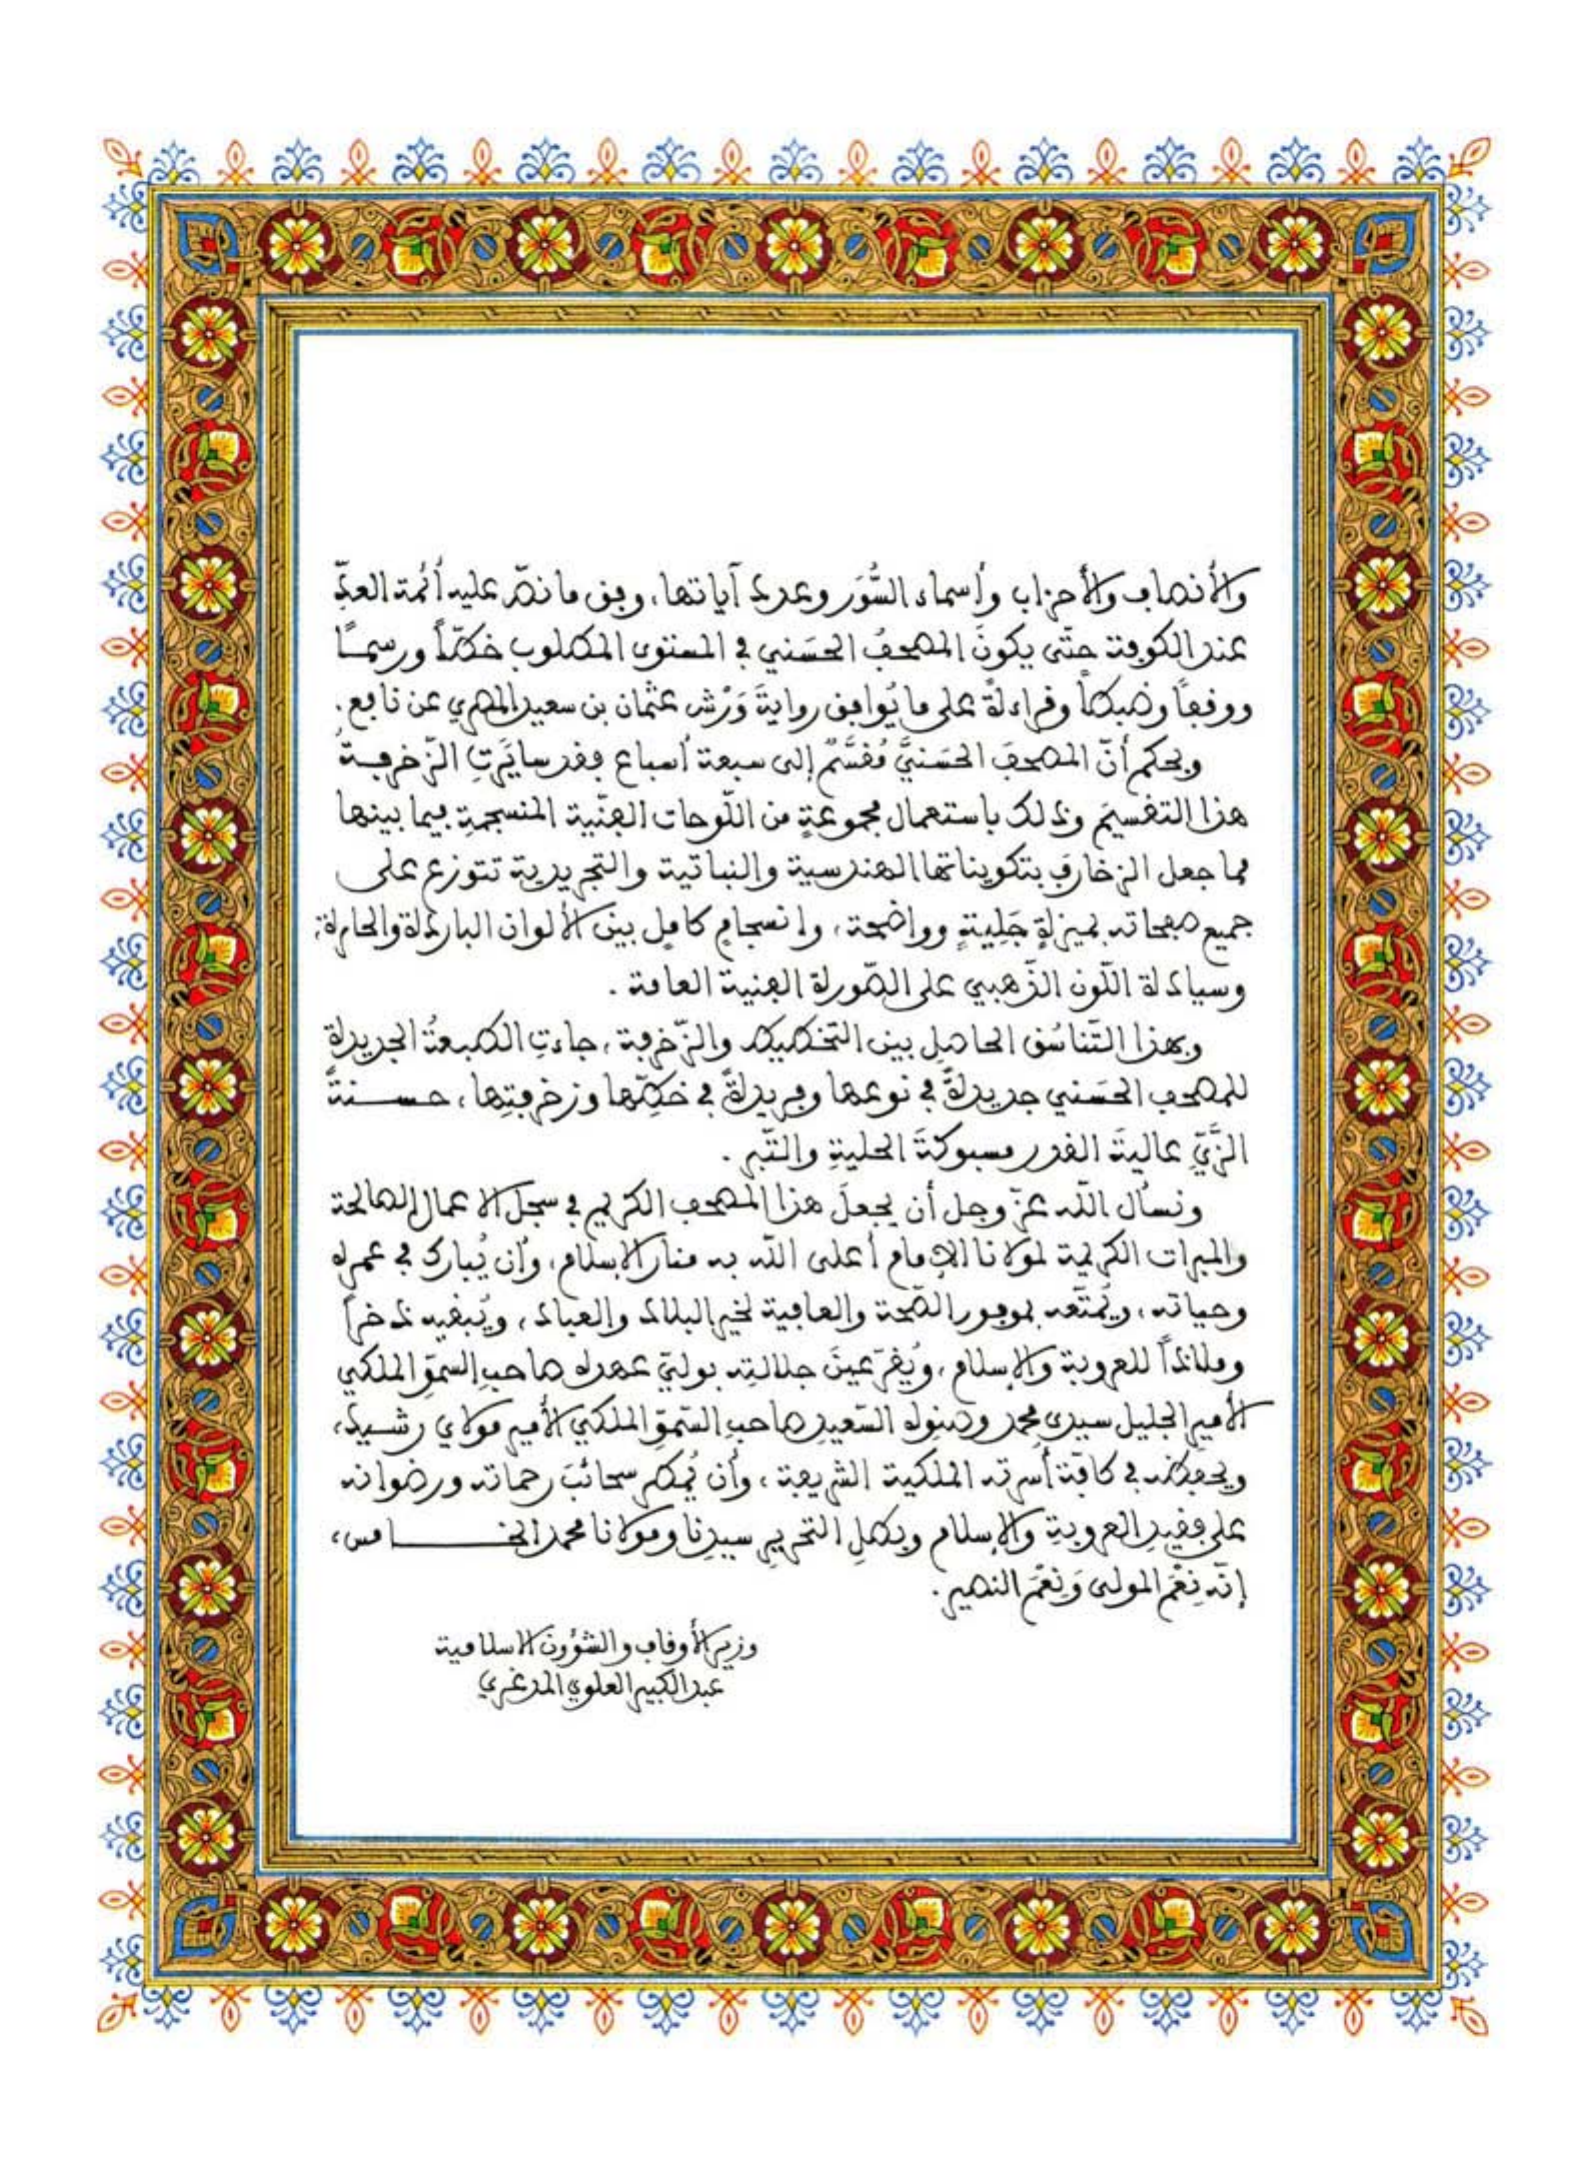 والأنصاف والأحزاب وأسماء السُّوَر وعدد آياتها، وفق ما نصّ عليه أئمة العدّ
عند الكوفة حتّى يكونَ المصحفُ الحسَني في المستوى المطلوب خطّاً ورسماً
ووقفاً وضبطاً وقراءةً على ما يُوافق روايةَ وَرْش عثمان بن سعيد المصري عن نافع.
وبحكم أنّ المصحفَ الحسَنيَّ مُقسَّمٌ إلى سبعة أسباع فقد سايَرَتِ الزّخرفةُ
هذا التقسيمَ وذلك باستعمال مجموعةٍ من اللّوحات الفنّية المنسجمةِ فيما بينها
مما جعل الزخارفَ بتكويناتها الهندسية والنباتية والتجريدية تتوزع على
جميع صفحاته بميزةٍ جَليةٍ وواضحة، وانسجامٍ كاملٍ بين الألوان الباردة والحارة،
وسيادة اللّون الذّهبي على الصّورة الفنية العامة.
وبهذا التّناسُق الحاصل بين التخطيط والزّخرفة، جاءتِ الطبعةُ الجديدة
للمصحف الحسَني جديدةً في نوعها وفريدةً في خطّها وزخرفتِها، حسنةَ
الزّيِّ عاليةَ القدر مسبوكةَ الحلية والتّبر.
ونسأل اللّه عزّ وجل أن يجعلَ هذا المصحف الكريم في سجل الأعمال الصالحة
والمبرات الكريمة لمولانا الإمام أعلى اللّه به منار الإسلام، وأن يُبارك في عمره
وحياته، ويُمتّعه بموفور الصّحة والعافية لخير البلاد والعباد، ويُبقيه ذخراً
وملاذاً للعروبة والإسلام، ويُقرّ عينَ جلالتِه بوليّ عهده صاحب السموّ الملكي
الأمير الجليل سيدي محمد وصنوه السّعيد صاحب السّموّ الملكي الأمير مولاي رشيد،
ويحفظه في كافّة أسرته الملكية الشريفة، وأن يُمطر سحائبَ رحماته ورضوانه
على فقيد العروبة والإسلام وبطل التحرير سيدنا ومولانا محمد الخامس،
إنّه نِعْمَ المولى وَنِعْمَ النصير.
وزير الأوقاف والشؤون الإسلامية
عبد الكبير العلوي المدغري